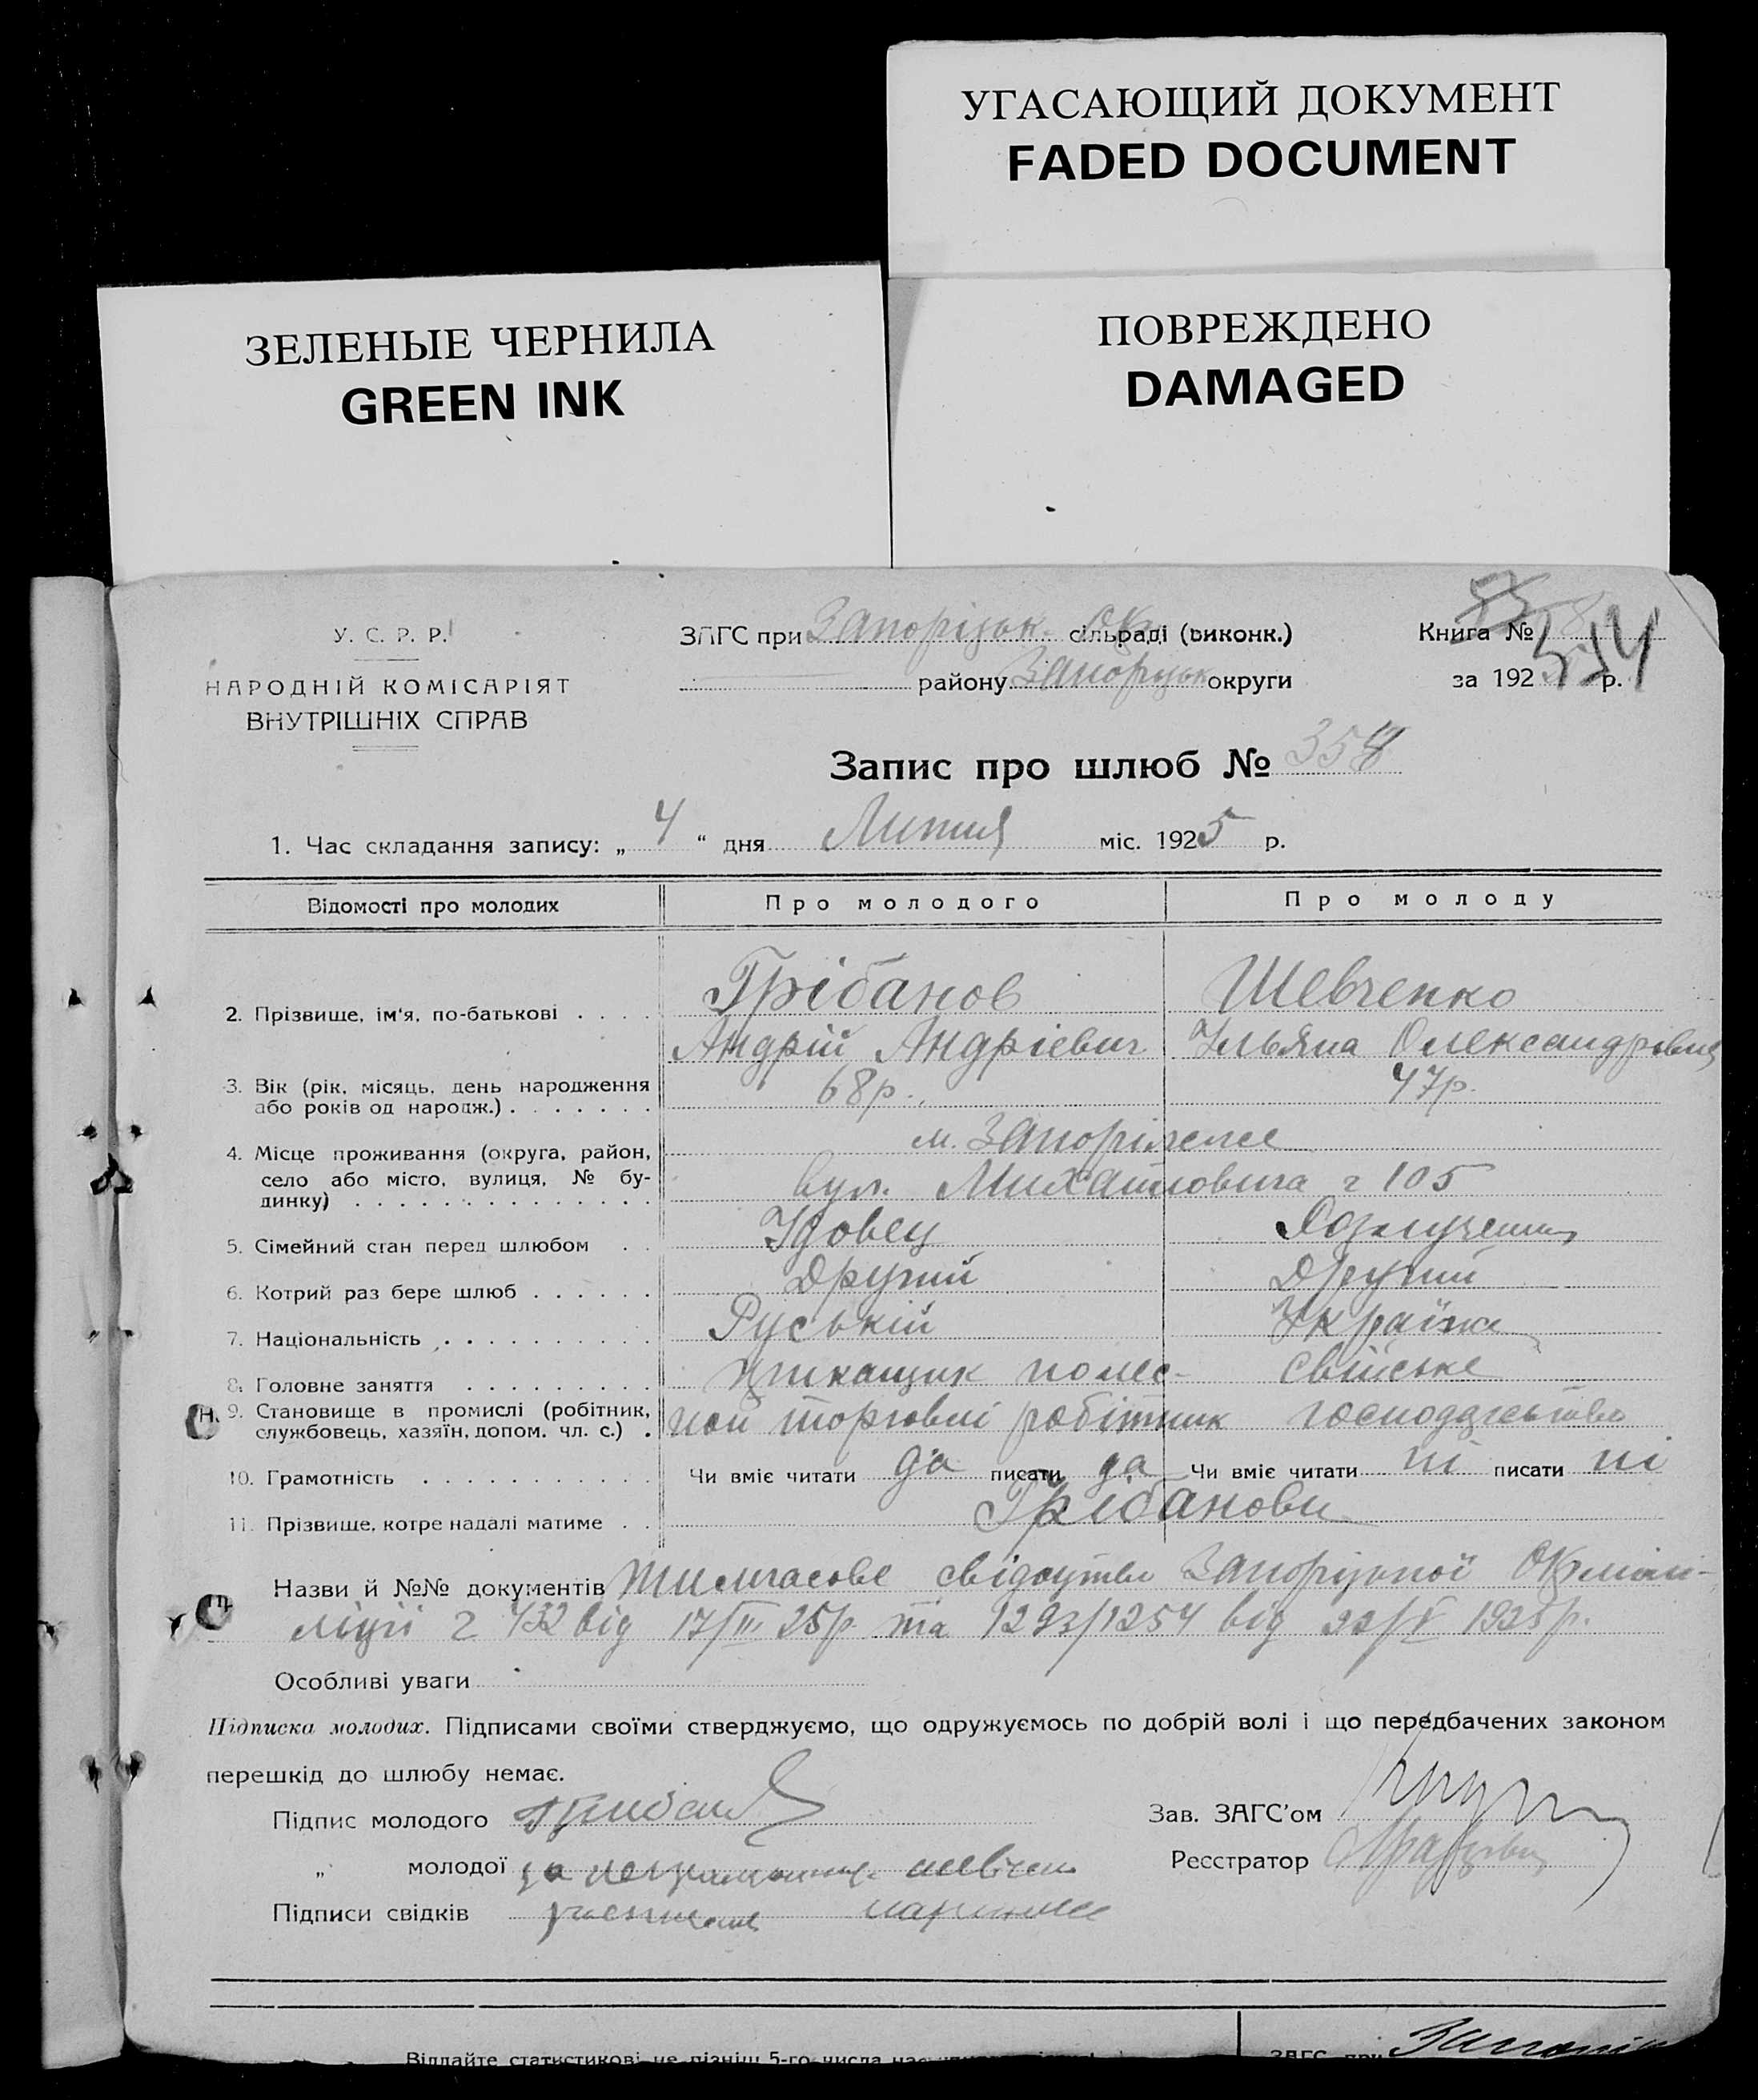 УГАСАЮЩИЙ ДОКУМЕНТ
FADED DOCUMENT
ЗЕЛЕНЫЕ ЧЕРНИЛА
GREEN INK
ПОВРЕЖДЕНО
DAMAGED
У. С. Р. Р.
НАРОДНІЙ КОМІСАРІЯТ
ВНУТРІШНІХ СПРАВ
ЗАГС при Запорізьк. Окр. сільраді (виконк.)
району Запорізьк округи
Книга №
за 192 р.
334
Запис про шлюб № 358
1. Час складання запису: „ 4 “ дня Липня міс. 1925 р.
Відомості про молодих Про молодого Про молоду
2. Прізвище, ім'я, по-батькові . . . . Грібанов Шевченко
Андрій Андрієвич Ульяна Олександрівна
3. Вік (рік, місяць, день народження
або років од народж.) . . . . . . . 68р. 47р.
4. Місце проживання (округа, район,
село або місто, вулиця, № бу-
динку) . . . . . . . . . . . . . .
м. Запоріжжє
вул. Михайловича 105
5. Сімейний стан перед шлюбом . . Удовец Розлучения
6. Котрий раз бере шлюб . . . . . . Другий Другий
7. Національність . . . . . . . . . . Руській Українка
8. Головне заняття . . . . . . . . . свійське
9. Становище в промислі (робітник,
службовець, хазяїн, допом. чл. с.) . торговлі робітник господарство
10. Грамотність . . . . . . . . . . . Чи вміє читати да писати да Чи вміє читати ні писати ні
11. Прізвище, котре надалі матиме . . Грібанови
Назви й №№ документів Тимчасове свідоцтво Запорізької Окрмілі-
ліції 432 від 17/III 25р. та 1293/1254 від 22/V 1925р.
Особливі уваги
Підписка молодих. Підписами своїми стверджуємо, що одружуємось по добрій волі і що передбачених законом
перешкід до шлюбу немає.
Підпис молодого
„ молодої за неграмотную
Підписи свідків
Зав. ЗАГС'ом
Реєстратор
Віддайте статистикові не пізніш 5-го числа
ЗАГС при